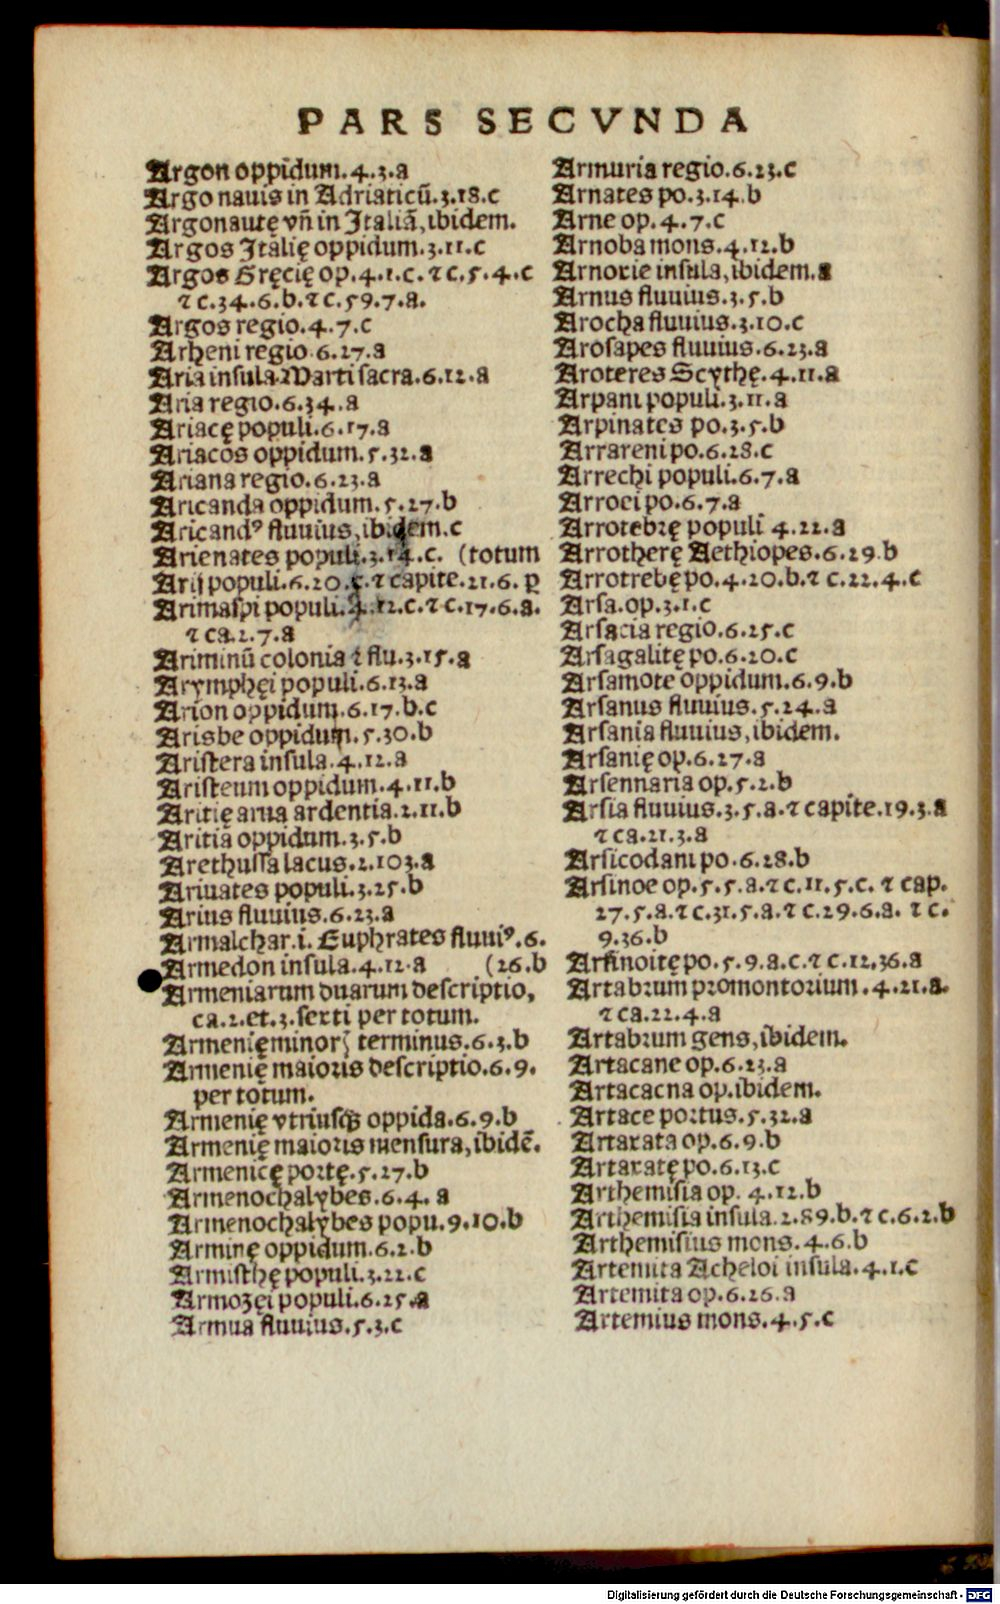 PARS SECVNDA
Argon oppidum.4.3.a
Argo nauis in Adriaticū.3.18.c
Argonautę vñ in Italiā, ibidem.
Argos Italię oppidum.3.11.c
Argos Gręcię op.4.1.c.⁊ c.5.4.c
⁊ c.34.6.b.⁊ c.59.7.a.
Argos regio.4.7.c
Arheni regio.6.27.a
Aria insula Marti sacra.6.12.a
Aria regio.6.34.a
Ariacę populi.6.17.a
Ariacos oppidum.5.32.a
Ariana regio.6.23.a
Aricanda oppidum.5.27.b
Aricandꝰ fluuius, ibidem.c
Arienates populi.3.14.c. (totum
Arij populi.6.20.c.⁊ capite.21.6.ꝑ
Arimaspi populi.4.12.c.⁊ c.17.6.a.
⁊ ca.2.7.a
Ariminū colonia ⁊ flu.3.15.a
Arymphęi populi.6.13.a
Arion oppidum.6.17.b.c
Arisbe oppidum.5.30.b
Aristera insula.4.12.a
Aristeum oppidum.4.11.b
Aritię arua ardentia.2.11.b
Aritia oppidum.3.5.b
Arethussa lacus.2.103.a
Ariuates populi.3.25.b
Arius fluuius.6.23.a
Armalchar.i. Euphrates fluuiꝰ.6.
Armedon insula.4.12.a (26.b
Armeniarum duarum descriptio,
ca.2.et.3.sexti per totum.
Armenię minorꝭ terminus.6.3.b
Armenię maioris descriptio.6.9.
per totum.
Armenię vtriusqꝫ oppida.6.9.b
Armenię maioris mensura, ibidē.
Armenicę portę.5.27.b
Armenochalybes.6.4.a
Armenochalybes popu.9.10.b
Arminę oppidum.6.2.b
Armisthę populi.3.22.c
Armozęi populi.6.25.a
Armua fluuius.5.3.c
Armuria regio.6.23.c
Arnates po.3.14.b
Arne op.4.7.c
Arnoba mons.4.12.b
Arnoxie insula, ibidem.a
Arnus fluuius.3.5.b
Arocha fluuius.3.10.c
Arosapes fluuius.6.23.a
Aroteres Scythę.4.11.a
Arpani populi.3.11.a
Arpinates po.3.5.b
Arrareni po.6.28.c
Arrechi populi.6.7.a
Arroei po.6.7.a
Arrotebrę populi 4.22.a
Arrotherę Aethiopes.6.29.b
Arrotrebę po.4.20.b.⁊ c.22.4.c
Arsa.op.3.1.c
Arsacia regio.6.25.c
Arsagalitę po.6.20.c
Arsamote oppidum.6.9.b
Arsanus fluuius.5.24.a
Arsania fluuius, ibidem.
Arsanię op.6.27.a
Arsennaria op.5.2.b
Arsia fluuius.3.5.a.⁊ capite.19.3.a
⁊ ca.21.3.a
Arsicodani po.6.28.b
Arsinoe op.5.5.a.⁊ c.11.5.c. ⁊ cap.
27.5.a.⁊ c.31.5.a.⁊ c.29.6.a. ⁊ c.
9.36.b
Arsinoitę po.5.9.a.c.⁊ c.12.36.a
Artabrum promontorium.4.21.a.
⁊ ca.22.4.a
Artabrum gens, ibidem.
Artacane op.6.23.a
Artacacna op.ibidem.
Artace portus.5.32.a
Artaxata op.6.9.b
Artaxatę po.6.13.c
Arthemisia op.4.12.b
Arthemisia insula.2.89.b.⁊ c.6.2.b
Arthemisius mons.4.6.b
Artemita Acheloi insula.4.1.c
Artemita op.6.26.a
Artemius mons.4.5.c
Digitalisierung gefördert durch die Deutsche Forschungsgemeinschaft - DFG